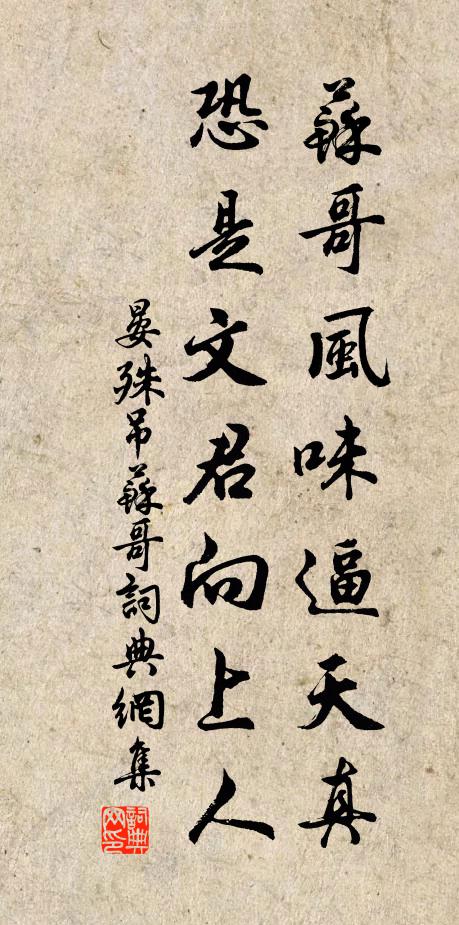 蘇哥風味逼天真
恐是文君向上人
晏殊吊蘇哥詞典網集
詞典网印